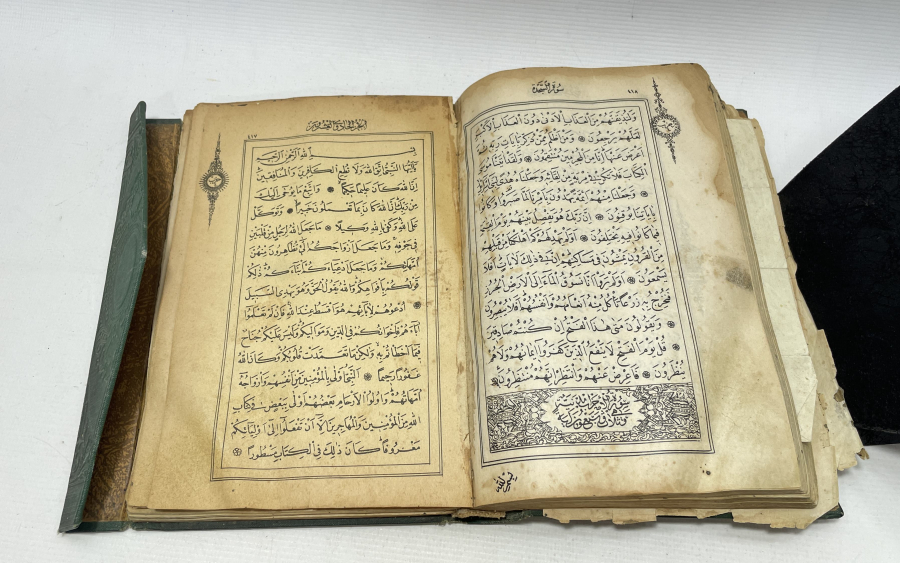 سُورَةُ السَّجْدَةِ
٤١٦
وَلَنُذِيقَنَّهُمْ مِنَ الْعَذَابِ الْاَدْنٰى دُونَ الْعَذَابِ الْاَكْبَرِ
لَعَلَّهُمْ يَرْجِعُونَ ۞ وَمَنْ اَظْلَمُ مِمَّنْ ذُكِّرَ بِاٰيَاتِ رَبِّهِ ثُمَّ
اَعْرَضَ عَنْهَا اِنَّا مِنَ الْمُجْرِمِينَ مُنْتَقِمُونَ ۞ وَلَقَدْ اٰتَيْنَا مُوسَى
الْكِتَابَ فَلَا تَكُنْ فِى مِرْيَةٍ مِنْ لِقَائِهِ وَجَعَلْنَاهُ هُدًى لِبَنِى اِسْرَائِلَ
۞ وَجَعَلْنَا مِنْهُمْ اَئِمَّةً يَهْدُونَ بِاَمْرِنَا لَمَّا صَبَرُوا وَكَانُوا
بِاٰيَاتِنَا يُوقِنُونَ ۞ اِنَّ رَبَّكَ هُوَ يَفْصِلُ بَيْنَهُمْ يَوْمَ الْقِيٰمَةِ
فِيمَا كَانُوا فِيهِ يَخْتَلِفُونَ ۞ اَوَلَمْ يَهْدِ لَهُمْ كَمْ اَهْلَكْنَا مِنْ قَبْلِهِمْ
مِنَ الْقُرُونِ يَمْشُونَ فِى مَسَاكِنِهِمْ اِنَّ فِى ذٰلِكَ لَاٰيَاتٍ اَفَلَا
يَسْمَعُونَ ۞ اَوَلَمْ يَرَوْا اَنَّا نَسُوقُ الْمَاءَ اِلَى الْاَرْضِ الْجُرُزِ
فَنُخْرِجُ بِهِ زَرْعًا تَأْكُلُ مِنْهُ اَنْعَامُهُمْ وَاَنْفُسُهُمْ اَفَلَا يُبْصِرُونَ
۞ وَيَقُولُونَ مَتٰى هٰذَا الْفَتْحُ اِنْ كُنْتُمْ صَادِقِينَ
۞ قُلْ يَوْمَ الْفَتْحِ لَا يَنْفَعُ الَّذِينَ كَفَرُوا اِيمَانُهُمْ وَلَا هُمْ
يُنْظَرُونَ ۞ فَاَعْرِضْ عَنْهُمْ وَانْتَظِرْ اِنَّهُمْ مُنْتَظِرُونَ ۞
سُورَةُ الْاَحْزَابِ مَدَنِيَّةٌ
بِسْمِ اللّٰهِ
اَلْجُزْءُ الْحَادِى وَالْعِشْرُونَ
٤١٧
بِسْمِ اللّٰهِ الرَّحْمٰنِ الرَّحِيمِ
يَا اَيُّهَا النَّبِىُّ اتَّقِ اللّٰهَ وَلَا تُطِعِ الْكَافِرِينَ وَالْمُنَافِقِينَ
اِنَّ اللّٰهَ كَانَ عَلِيمًا حَكِيمًا ۞ وَاتَّبِعْ مَا يُوحٰى اِلَيْكَ
مِنْ رَبِّكَ اِنَّ اللّٰهَ كَانَ بِمَا تَعْمَلُونَ خَبِيرًا ۞ وَتَوَكَّلْ
عَلَى اللّٰهِ وَكَفٰى بِاللّٰهِ وَكِيلًا ۞ مَا جَعَلَ اللّٰهُ لِرَجُلٍ مِنْ قَلْبَيْنِ
فِى جَوْفِهِ وَمَا جَعَلَ اَزْوَاجَكُمُ الّٰئِ تُظَاهِرُونَ مِنْهُنَّ
اُمَّهَاتِكُمْ وَمَا جَعَلَ اَدْعِيَاءَكُمْ اَبْنَاءَكُمْ ذٰلِكُمْ
قَوْلُكُمْ بِاَفْوَاهِكُمْ وَاللّٰهُ يَقُولُ الْحَقَّ وَهُوَ يَهْدِى السَّبِيلَ
۞ اُدْعُوهُمْ لِاٰبَائِهِمْ هُوَ اَقْسَطُ عِنْدَ اللّٰهِ فَاِنْ لَمْ تَعْلَمُوا
اٰبَاءَهُمْ فَاِخْوَانُكُمْ فِى الدِّينِ وَمَوَالِيكُمْ وَلَيْسَ عَلَيْكُمْ جُنَاحٌ
فِيمَا اَخْطَأْتُمْ بِهِ وَلٰكِنْ مَا تَعَمَّدَتْ قُلُوبُكُمْ وَكَانَ اللّٰهُ
غَفُورًا رَحِيمًا ۞ اَلنَّبِىُّ اَوْلٰى بِالْمُؤْمِنِينَ مِنْ اَنْفُسِهِمْ وَاَزْوَاجُهُ
اُمَّهَاتُهُمْ وَاُولُوا الْاَرْحَامِ بَعْضُهُمْ اَوْلٰى بِبَعْضٍ فِى كِتَابِ
اللّٰهِ مِنَ الْمُؤْمِنِينَ وَالْمُهَاجِرِينَ اِلَّا اَنْ تَفْعَلُوا اِلٰى اَوْلِيَائِكُمْ
مَعْرُوفًا كَانَ ذٰلِكَ فِى الْكِتَابِ مَسْطُورًا ۞